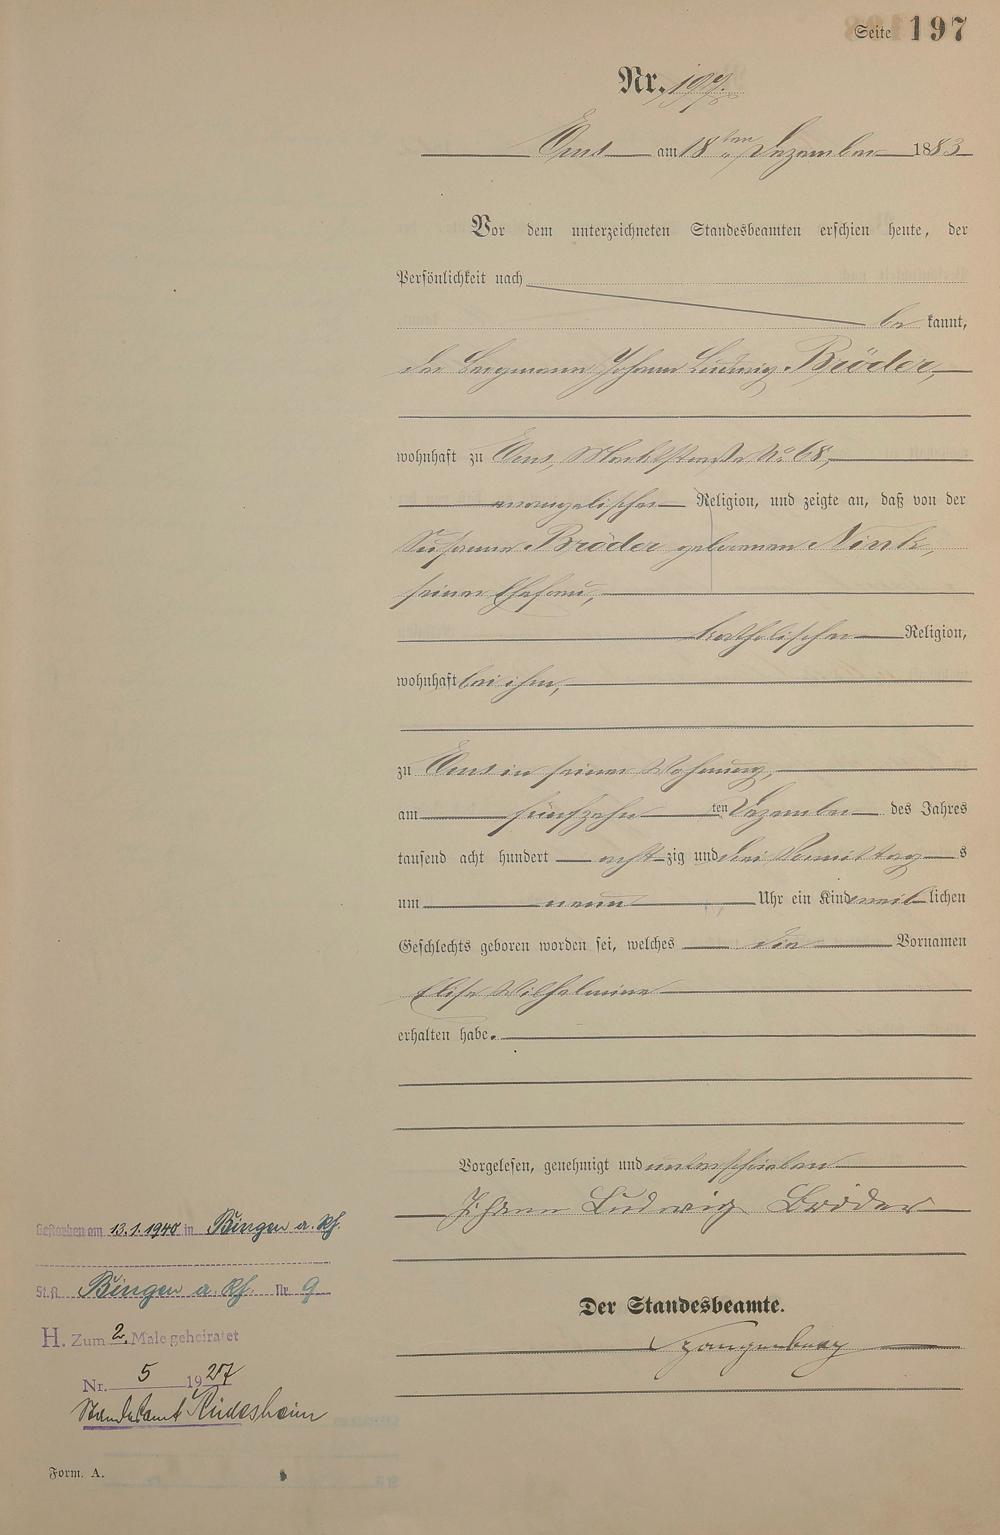 Seite 197
Nr. 197.
Ems am 18ten Dezember 1883
Vor dem unterzeichneten Standesbeamten erschien heute, der
Persönlichkeit nach
be kannt,
der Bergmann Johann Ludwig Bröder,
wohnhaft zu Ems, Marktstraße No 68,
evangelischer Religion, und zeigte an, daß von der
Susanna Bröder geborenen Nink,
seiner Ehefrau,
katholischer Religion,
wohnhaft bei ihm,
zu Ems in seiner Wohnung,
am fünfzehn ten Dezember des Jahres
tausend acht hundert acht zig und drei Vormittag s
um neun Uhr ein Kind weib lichen
Geschlechts geboren worden sei, welches die Vornamen
Elise Wilhelmine
erhalten habe.
Vorgelesen, genehmigt und unterschrieben
Johann Ludwig Bröder
Der Standesbeamte.
Gestorben am 13.1.1940 in Bingen a. Rh.
St.A. Bingen a. Rh. Nr. 9
H. Zum 2. Male geheiratet
Nr. 5 1927
Standesamt Rüdesheim
Form. A.